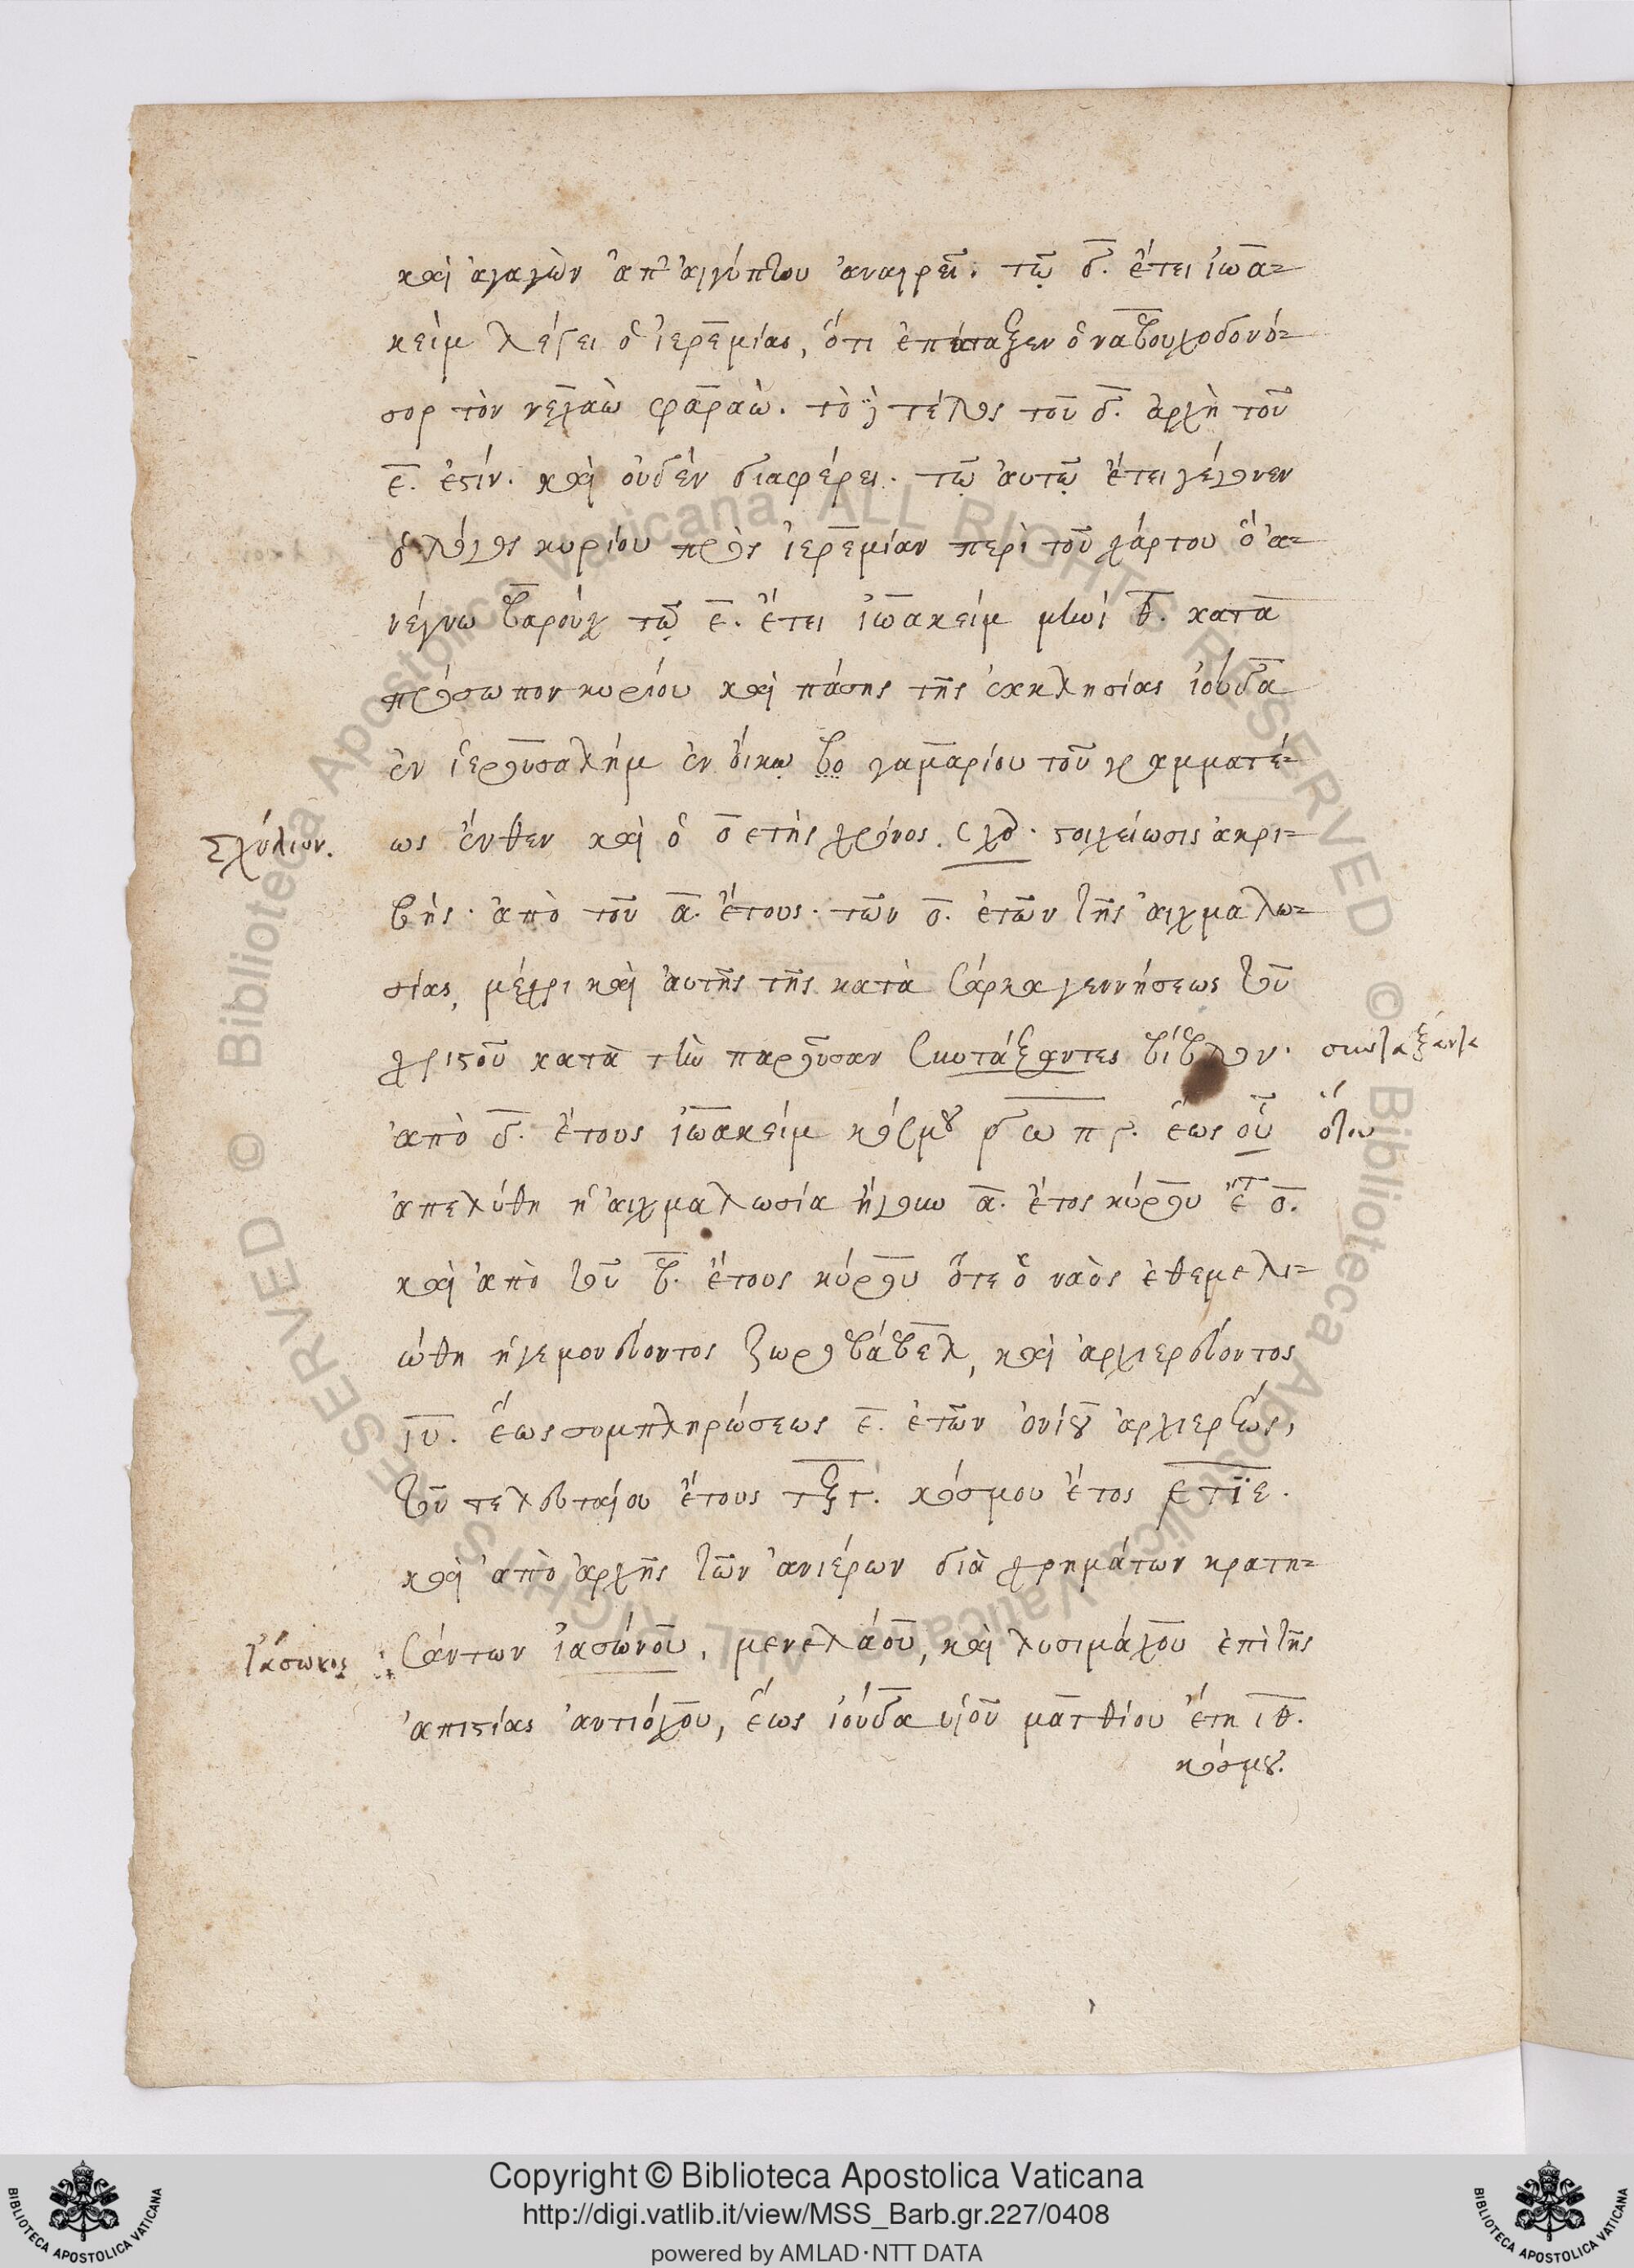 καὶ ἀγαγὼν ἀπ' αἰγύπτου ἀναιρεῖ. τῷ δ. ἔτει ἰωα=
κεὶμ λέγει ὁ ἱερεμίας, ὅτι ἐπάταξεν ὁ ναβουχοδονό=
σορ τὸν νεχαὼ φαραώ. τὸ γὰρ τέλος τοῦ δ. ἀρχὴ τοῦ
ε. ἐστίν. καὶ οὐδὲν διαφέρει. τῷ αὐτῷ ἔτει γέγονεν
ὁ λόγος κυρίου πρὸς ἱερεμίαν περὶ τοῦ χάρτου ὃ ἀ=
νέγνω βαροὺχ τῷ ε. ἔτει ἰωακείμ μηνὶ θ. κατὰ
πρόσωπον κυρίου καὶ πάσης τῆς ἐκκλησίας ἰούδα
ἐν ἱερουσαλήμ ἐν οἴκῳ βο γαμαρίου τοῦ γραμματέ=
Σχόλιον.
ως ἔνθεν καὶ ὁ ο ετὴς χρόνος. Σχο. στοιχείωσις ἀκρι=
βής. ἀπὸ τοῦ α. ἔτους. τῶν ο. ἐτῶν τῆς αἰχμαλω=
σίας, μέχρι καὶ αὐτῆς τῆς κατὰ σάρκα γεννήσεως τοῦ
χριστοῦ κατὰ τὴν παροῦσαν συντάξαντες βίβλον. συνταξάντα
ἀπὸ δ. ἔτους ἰωακείμ κόσμου ω π ἕως οὗ ὅτου
ἀπελύθη ἡ αἰχμαλωσία ἤγουν α. ἔτος κύρου ἔτ ο.
καὶ ἀπὸ τοῦ β. ἔτους κύρου ὅτε ὁ ναὸς ἐθεμελι=
ώθη ἡγεμονεύοντος ζωροβάβελ, καὶ ἀρχιερεύοντος
ιυ. ἕως συμπληρώσεως ε. ἐτῶν ὀνίου ἀρχιερέως,
τοῦ τελευταίου ἔτους τξ κόσμου ἔτος ετιε.
καὶ ἀπὸ ἀρχῆς τῶν ἀνιέρων διὰ χρημάτων κρατη=
Ἰάσωνος
σάντων ἰασώνου, μενελάου, καὶ λυσιμάχου ἐπὶ τῆς
ἀπιστίας ἀντιόχου, ἕως ἰούδα υἱοῦ ματθίου ἔτη ιθ.
κόσμου.
Copyright © Biblioteca Apostolica Vaticana
http://digi.vatlib.it/view/MSS_Barb.gr.227/0408
powered by AMLAD·NTT DATA
BIBLIOTECA APOSTOLICA VATICANA
BIBLIOTECA APOSTOLICA VATICANA
© Biblioteca Apostolica Vaticana ALL RIGHTS RESERVED
© Biblioteca Apostolica Vaticana ALL RIGHTS RESERVED